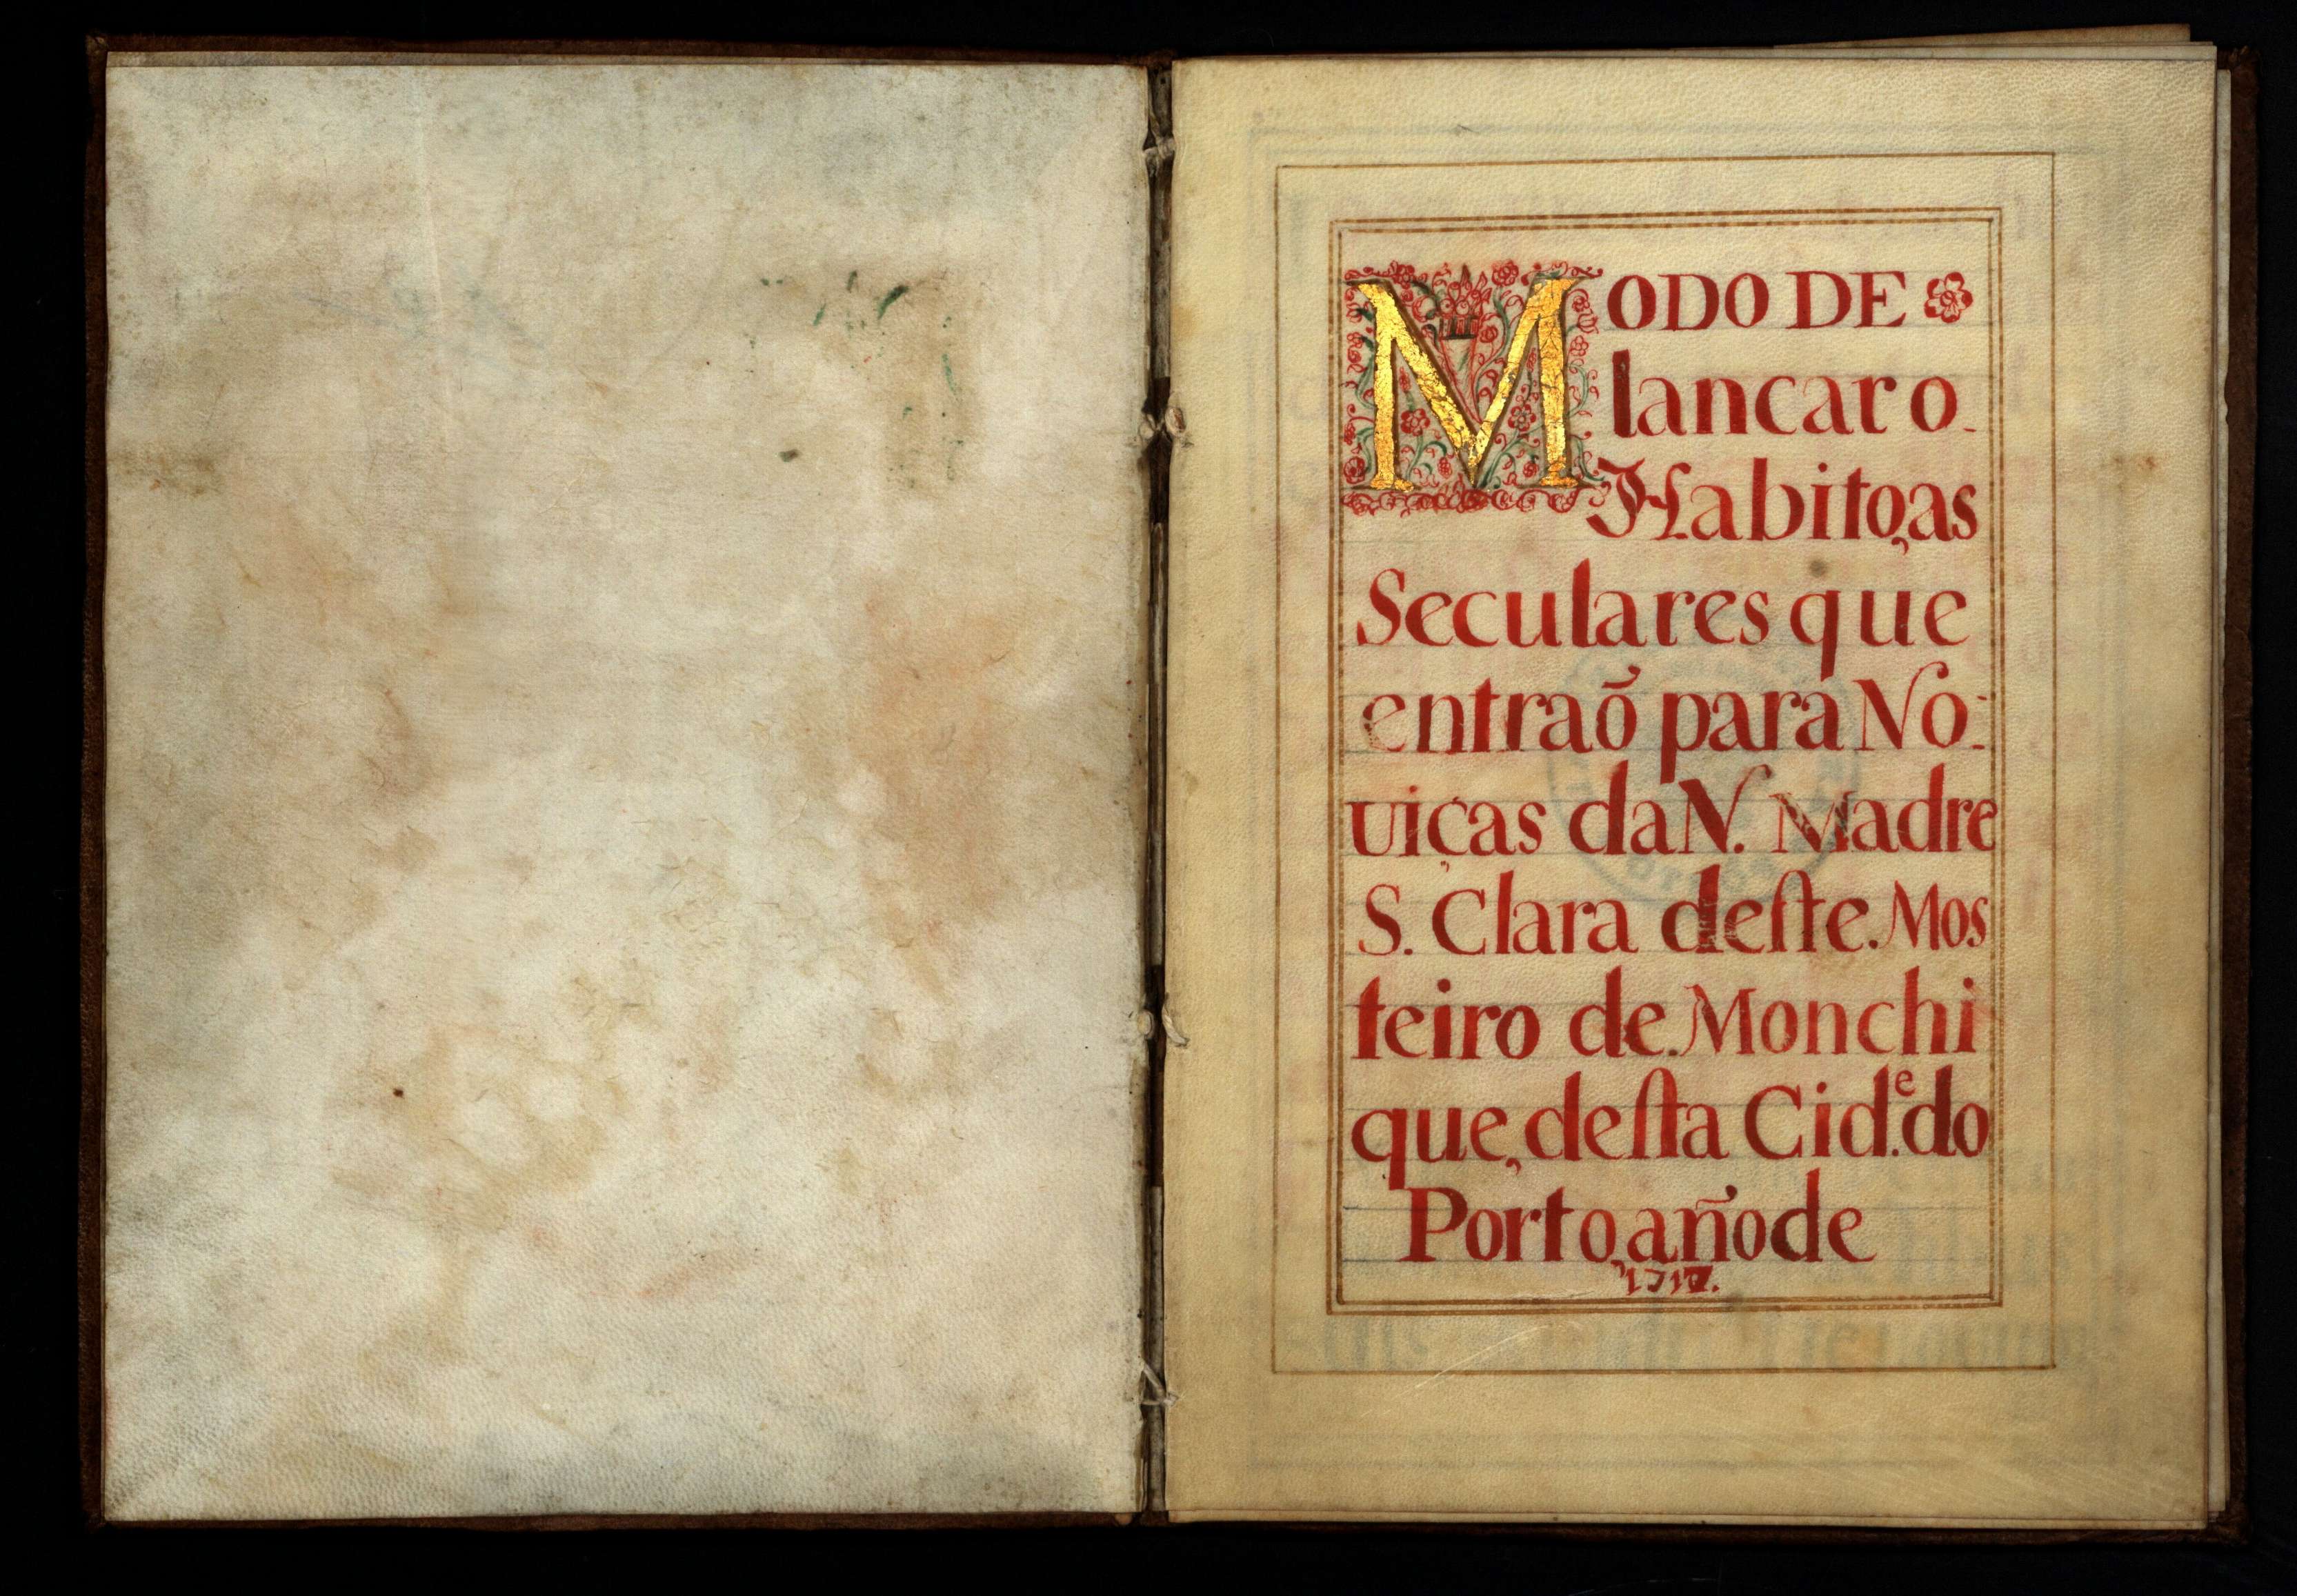 MODO DE
lancar o
Habito, as
Seculares que
entraõ para No-
uiças da N. Madre
S. Clara deſte. Mos
teiro de. Monchi
que, deſta Cid.ᵉ do
Porto, año de
1717.